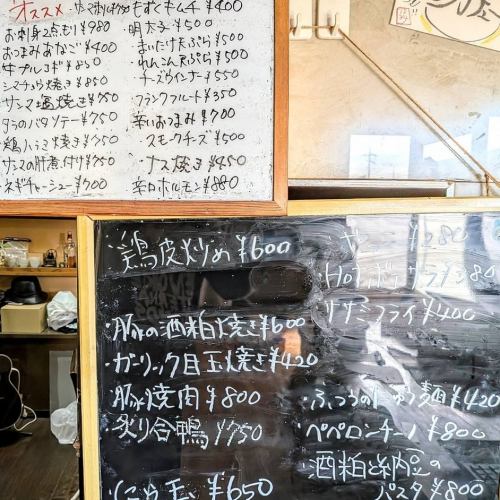 オススメ
もずくキムチ ¥400
お刺身2点もり ¥980
おつまみあなご ¥400
牛プルコギ ¥850
シマチョウ焼き ¥850
サンマ塩焼き ¥750
タラのバタソテー ¥750
鶏ハラミ焼き ¥750
サンマの肝煮付け ¥750
ネギチャーシュー ¥700
明太子 ¥500
まいたけ天ぷら ¥500
れんこん天ぷら ¥500
チーズウインナー ¥550
フランクフルト ¥350
辛いおつまみ ¥700
スモークチーズ ¥500
ナス焼き ¥450
辛口ホルモン ¥880
・鶏皮炒め ¥600
・豚の酒粕焼き ¥600
・ガーリック目玉焼き ¥420
・豚焼肉 ¥800
・炙り合鴨 ¥750
・にら玉 ¥650
¥280
・HOTポテサラダ
・ササミフライ ¥400
・ふつうの 麺 ¥420
・ペペロンチーノ ¥800
・酒粕と納豆の
パスタ ¥800